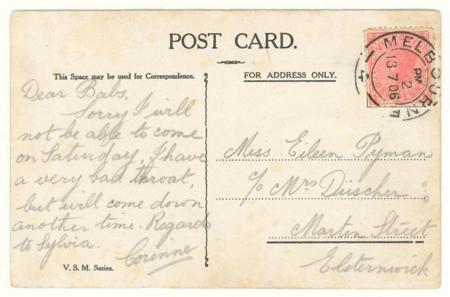 POST CARD.
This Space may be used for Correspondence.
FOR ADDRESS ONLY.
MELBOURNE
2 PM
13 7 06
4
Dear Babs,
Sorry I will
not be able to come
on Saturday, I have
a very bad throat,
but will come down
another time. Regards
to Sylvia.
Corinne
V. S. M. Series.
Miss Eileen Pyman
c/o Mrs Duscher
Martin Street
Elsternwick